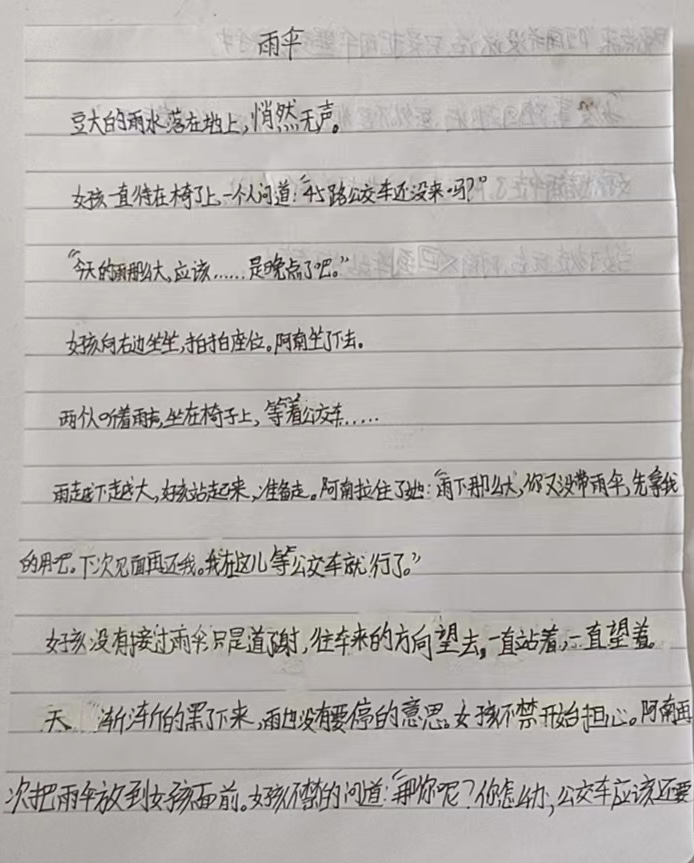 雨伞
豆大的雨水落在地上,悄然无声。
女孩一直待在椅子上,一个人问道:“45路公交车还没来吗?”
“今天的雨那么大,应该……是晚点了吧。”
女孩向右边坐坐,拍拍座位。阿南坐了下去。
两个人听着雨声,坐在椅子上,等着公交车……
雨越下越大,女孩站起来,准备走。阿南拉住了她:“雨下那么大,你又没带雨伞,先拿我
的用吧。下次见面再还我。我在这儿等公交车就行了。”
女孩没有接过雨伞只是道了谢,往车来的方向望去,一直站着,一直望着。
天 渐渐的黑了下来,雨也没有要停的意思。女孩不禁开始担心。阿南再
次把雨伞放到女孩面前。女孩不禁的问道:“那你呢?你怎么办,公交车应该还要